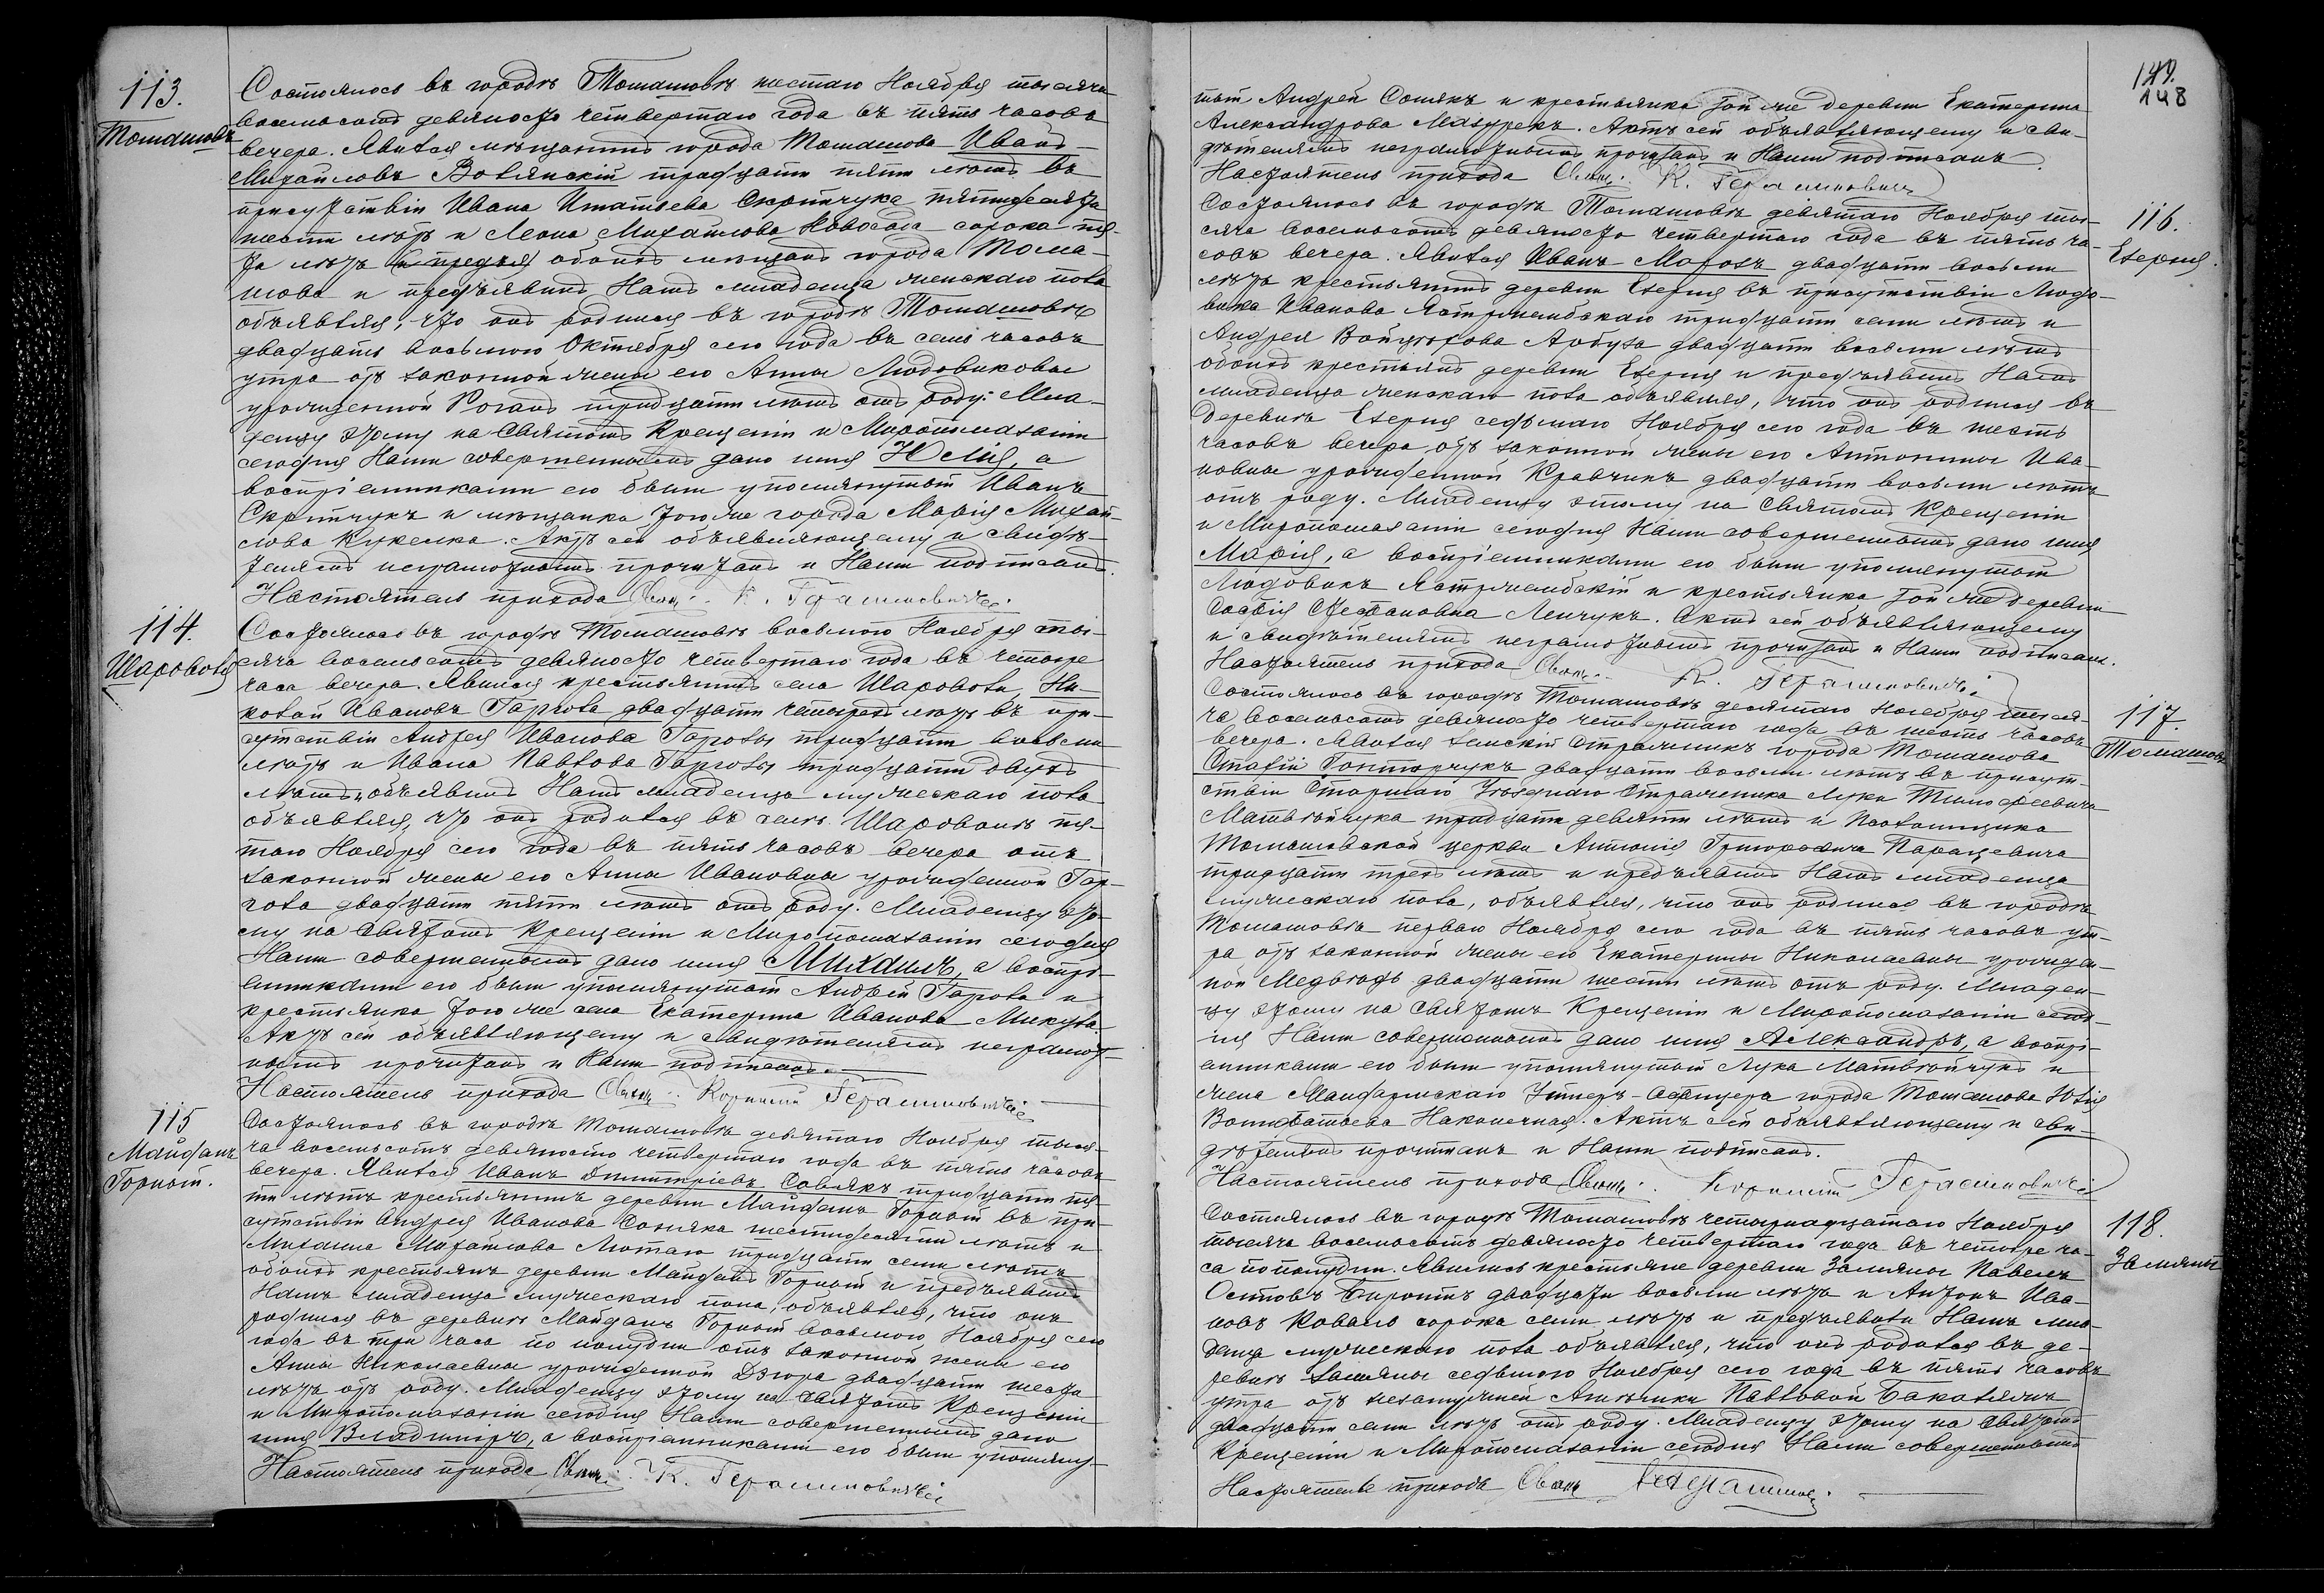 113.
Томашовъ
Состоялось въ городѣ Томашовѣ шестаго Ноября тысяча
восемьсотъ девяносто четвертаго года въ пять часовъ
вечера. Явился мѣщанинъ города Томашова Иванъ
Михайловъ Волянскій тридцати пяти лѣтъ въ
присутствіи Ивана Игнатьева Скрипчука пятидесяти
шести лѣтъ и Леона Михайлова Новосада сорока пя-
ти лѣтъ обоихъ мѣщанъ города Тома-
шова и предъявилъ Намъ младенца женскаго пола
объявляя, что онъ родился въ городѣ Томашовѣ
двадцать восьмого Октября сего года въ семь часовъ
утра отъ законной жены его Анны Людовиковы
урожденной Роганъ тридцати лѣтъ отъ роду. Мла-
денцу этому на Святомъ Крещеніи и Миропомазаніи
сегодня Нами совершенныхъ дано имя Юлія, а
воспріемниками его были упомянутый Иванъ
Скрипчукъ и мѣщанка того же города Марія Михай-
лова Кукелка. Актъ сей объявляющему и свидѣ-
телямъ неграмотнымъ прочитанъ и Нами подписанъ.
Настоятель прихода Свящ. К. Герасимовичъ
114.
Шаровола
Состоялось въ городѣ Томашовѣ восьмого Ноября ты-
сяча восемьсотъ девяносто четвертаго года въ четыре
часа вечера. Явился крестьянинъ села Шаровола, Ни-
колай Ивановъ Гаргола двадцати четырехъ лѣтъ въ при-
сутствіи Андрея Иванова Гарголы тридцати восьми
лѣтъ и Ивана Павлова Гарголы тридцати двухъ
лѣтъ, объявилъ Намъ младенца мужескаго пола
объявляя, что онъ родился въ селѣ Шароволѣ пя-
таго Ноября сего года въ пять часовъ вечера отъ
законной жены его Анны Ивановны урожденной Гар-
гола двадцати пяти лѣтъ отъ роду. Младенцу это-
му на Святомъ Крещеніи и Миропомазаніи сегодня
Нами совершенныхъ дано имя Михаилъ, а воспрі-
емниками его были упомянутый Андрей Гаргола и
крестьянка того же села Екатерина Иванова Микула.
Актъ сей объявляющему и свидѣтелямъ неграмот-
нымъ прочитанъ и Нами подписанъ.
Настоятель прихода Свящ. Корнилій Герасимовичъ
115
Майданъ
Горный.
Состоялось въ городѣ Томашовѣ девятаго Ноября тыся-
ча восемьсотъ девяносто четвертаго года въ пять часовъ
вечера. Явился Иванъ Димитріевъ Совлякъ тридцати пя-
ти лѣтъ крестьянинъ деревни Майданъ Горный въ при-
сутствіи Андрея Иванова Сомяка шестидесяти лѣтъ и
Михаила Михайлова Лютаго тридцати семи лѣтъ
обоихъ крестьянъ деревни Майданъ Горный и предъявилъ
Намъ младенца мужескаго пола, объявляя, что онъ
родился въ деревнѣ Майданъ Горный восьмого Ноября сего
года въ три часа по полудни отъ законной жены его
Анны Николаевны урожденной Дзюра двадцати шести
лѣтъ отъ роду. Младенцу этому на Святомъ Крещеніи
и Миропомазаніи сегодня Нами совершенныхъ дано
имя Владиміръ, а воспріемниками его были упомяну-
Настоятель прихода Свящ. К. Герасимовичъ
149.
148
тый Андрей Сомякъ и крестьянка той же деревни Екатерина
Александрова Мазурекъ. Актъ сей объявляющему и сви-
дѣтелямъ неграмотнымъ прочитанъ и Нами подписанъ
Настоятель прихода Свящ. К. Герасимовичъ
116.
Езерня.
Состоялось въ городѣ Томашовѣ девятаго Ноября ты-
сяча восемьсотъ девяносто четвертаго года въ пять ча-
совъ вечера. Явился Иванъ Морозъ двадцати восьми
лѣтъ крестьянинъ деревни Езерня въ присутствіи Людо-
вика Иванова Ястржембскаго тридцати семи лѣтъ и
Андрея Войцѣхова Арбуза двадцати восьми лѣтъ
обоихъ крестьянъ деревни Езерня и предъявилъ Намъ
младенца женскаго пола объявляя, что онъ родился въ
деревнѣ Езерня седьмаго Ноября сего года въ шесть
часовъ вечера отъ законной жены его Антонины Ива-
новны урожденной Кравчикъ двадцати восьми лѣтъ
отъ роду. Младенцу этому на Святомъ Крещеніи
и Миропомазаніи сегодня Нами совершенныхъ дано имя
Марія, а воспріемниками его были упомянутый
Людовикъ Ястржембскій и крестьянка той же деревни
Софія Степановна Ленчукъ. Актъ сей объявляющему
и свидѣтелямъ неграмотнымъ прочитанъ и Нами подписанъ.
Настоятель прихода Свящ. К. Герасимовичъ
117.
Томашовъ
Состоялось въ городѣ Томашовѣ десятаго Ноября тыся-
ча восемьсотъ девяносто четвертаго года въ шесть часовъ
вечера. Явился Земскій Стражникъ города Томашова
Гонторчукъ двадцати восьми лѣтъ въ присут-
ствіи Старшаго Стражника Луки Тимофеевича
Матвѣйчука тридцати девяти лѣтъ и Псаломщика
Томашовской церкви Антонія Григорьевича Парацевича
тридцати трехъ лѣтъ и предъявилъ Намъ младенца
мужескаго пола, объявляя, что онъ родился въ городѣ
Томашовѣ перваго Ноября сего года въ пять часовъ ут-
ра отъ законной жены его Екатерины Николаевны урожден-
ной Медвѣдь двадцати шести лѣтъ отъ роду. Младен-
цу этому на Святомъ Крещеніи и Миропомазаніи сегод-
ня Нами совершенныхъ дано имя Александръ, а воспрі-
емниками его были упомянутый Лука Матвѣйчукъ и
жена Жандармскаго Унтеръ-Офицера города Томашова Юлія
Наконечная. Актъ сей объявляющему и сви-
дѣтелямъ прочитанъ и Нами подписанъ.
Настоятель прихода Свящ. Корнилій Герасимовичъ
118.
Замяны
Состоялось въ городѣ Томашовѣ четырнадцатаго Ноября
тысяча восемьсотъ девяносто четвертаго года въ четыре ча-
са пополудни. Явились крестьяне деревни Замяны Павелъ
двадцати восьми лѣтъ и Антонъ Ива-
новъ Коваль сорока семи лѣтъ и предъявили Намъ мла-
денца мужескаго пола объявляя, что онъ родился въ де-
ревнѣ Замяны седьмого Ноября сего года въ пять часовъ
утра отъ незамужней Ангелики Павловой
двадцати семи лѣтъ отъ роду. Младенцу этому на Святомъ
Крещеніи и Миропомазаніи сегодня Нами совершенныхъ
Настоятель прихода Свящ.